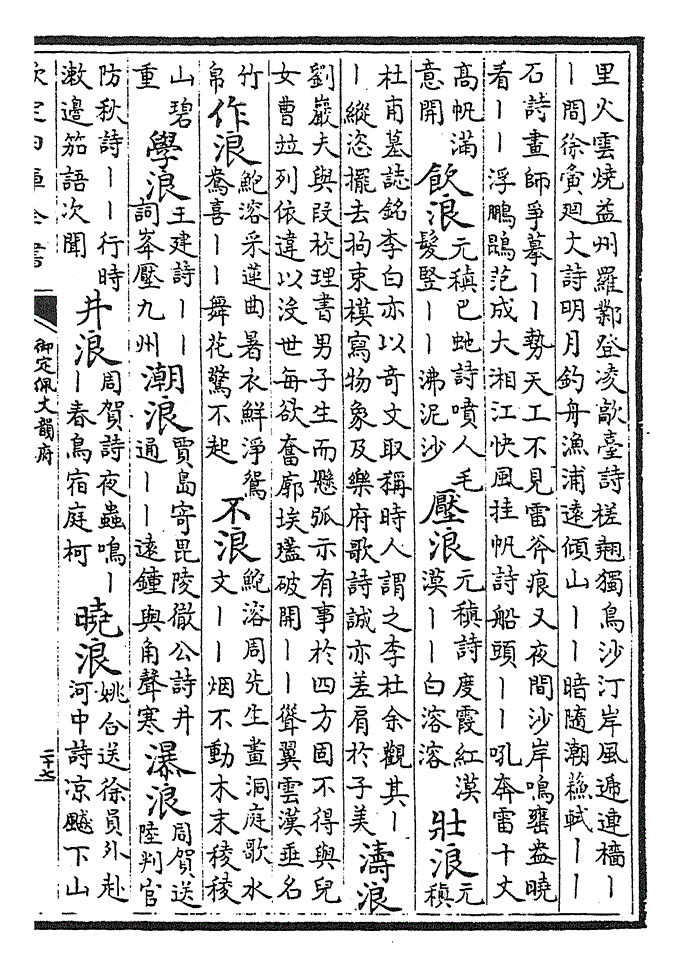 里火雲燒益州羅鄴登凌歊臺詩槎翹獨鳥沙汀岸風遞連檣丨
丨間徐夤廻文詩明月釣舟漁浦遠傾山丨丨暗隨潮蘇軾丨丨
石詩畫師爭摹丨丨勢天工不見雷斧痕又夜間沙岸鳴罋盎曉
看丨丨浮鵬鶤范成大湘江快風挂帆詩船頭丨丨吼奔雷十丈
高帆滿
意開
飲浪
元稹巴虵詩噴人毛
髮竪丨丨沸泥沙
壓浪
元稹詩度霞紅漠
漠丨丨白溶溶
壯浪
元
稹
杜甫墓誌銘李白亦以奇文取稱時人謂之李杜余觀其丨
丨縱恣擺去拘束模寫物象及樂府歌詩誠亦差肩於子美
濤浪
劉巖夫與段校理書男子生而懸弧示有事於四方固不得與兒
女曹竝列依違以沒世每欲奮廓埃壒破開丨丨聳翼雲漢垂名
竹
帛
作浪
鮑溶采蓮曲暑衣鮮淨鴛
鴦喜丨丨舞花驚不起
不浪
鮑溶周先生畫洞庭歌水
文丨丨烟不動木末稜稜
山碧
重
學浪
王建詩丨丨
詞峯壓九州
潮浪
賈島寄毘陵徹公詩井
通丨丨遠鐘與角聲寒
瀑浪
周賀送
陸判官
防秋詩丨丨行時
漱邊笳語次聞
井浪
周賀詩夜蟲鳴丨
丨春鳥宿庭柯
曉浪
姚合送徐員外赴
河中詩凉飈下山
欽定四庫全書
御定佩文韻府
二十七